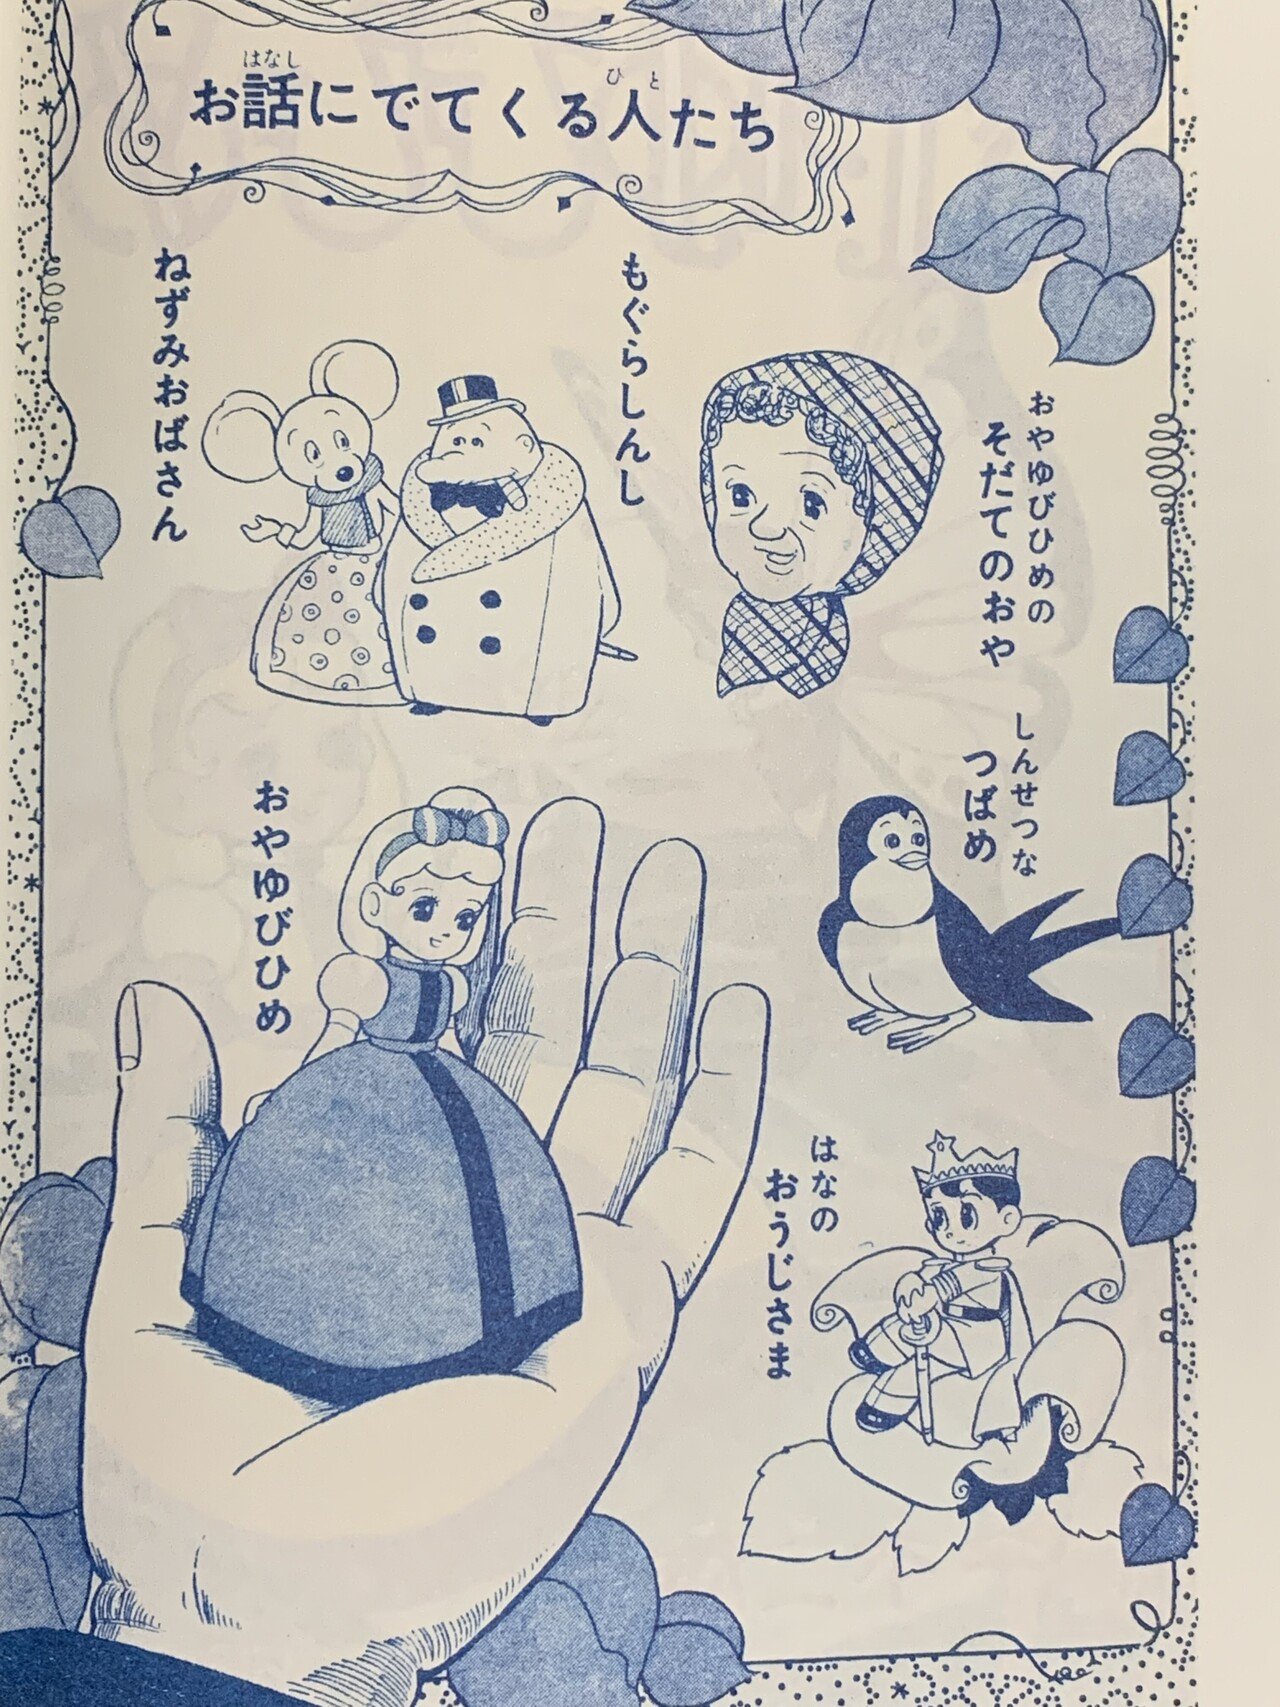 お話にでてくる人たち
はなし
ひと
おやゆびひめの
そだてのおや
もぐらしんし
ねずみおばさん
しんせつな
つばめ
おやゆびひめ
はなの
おうじさま